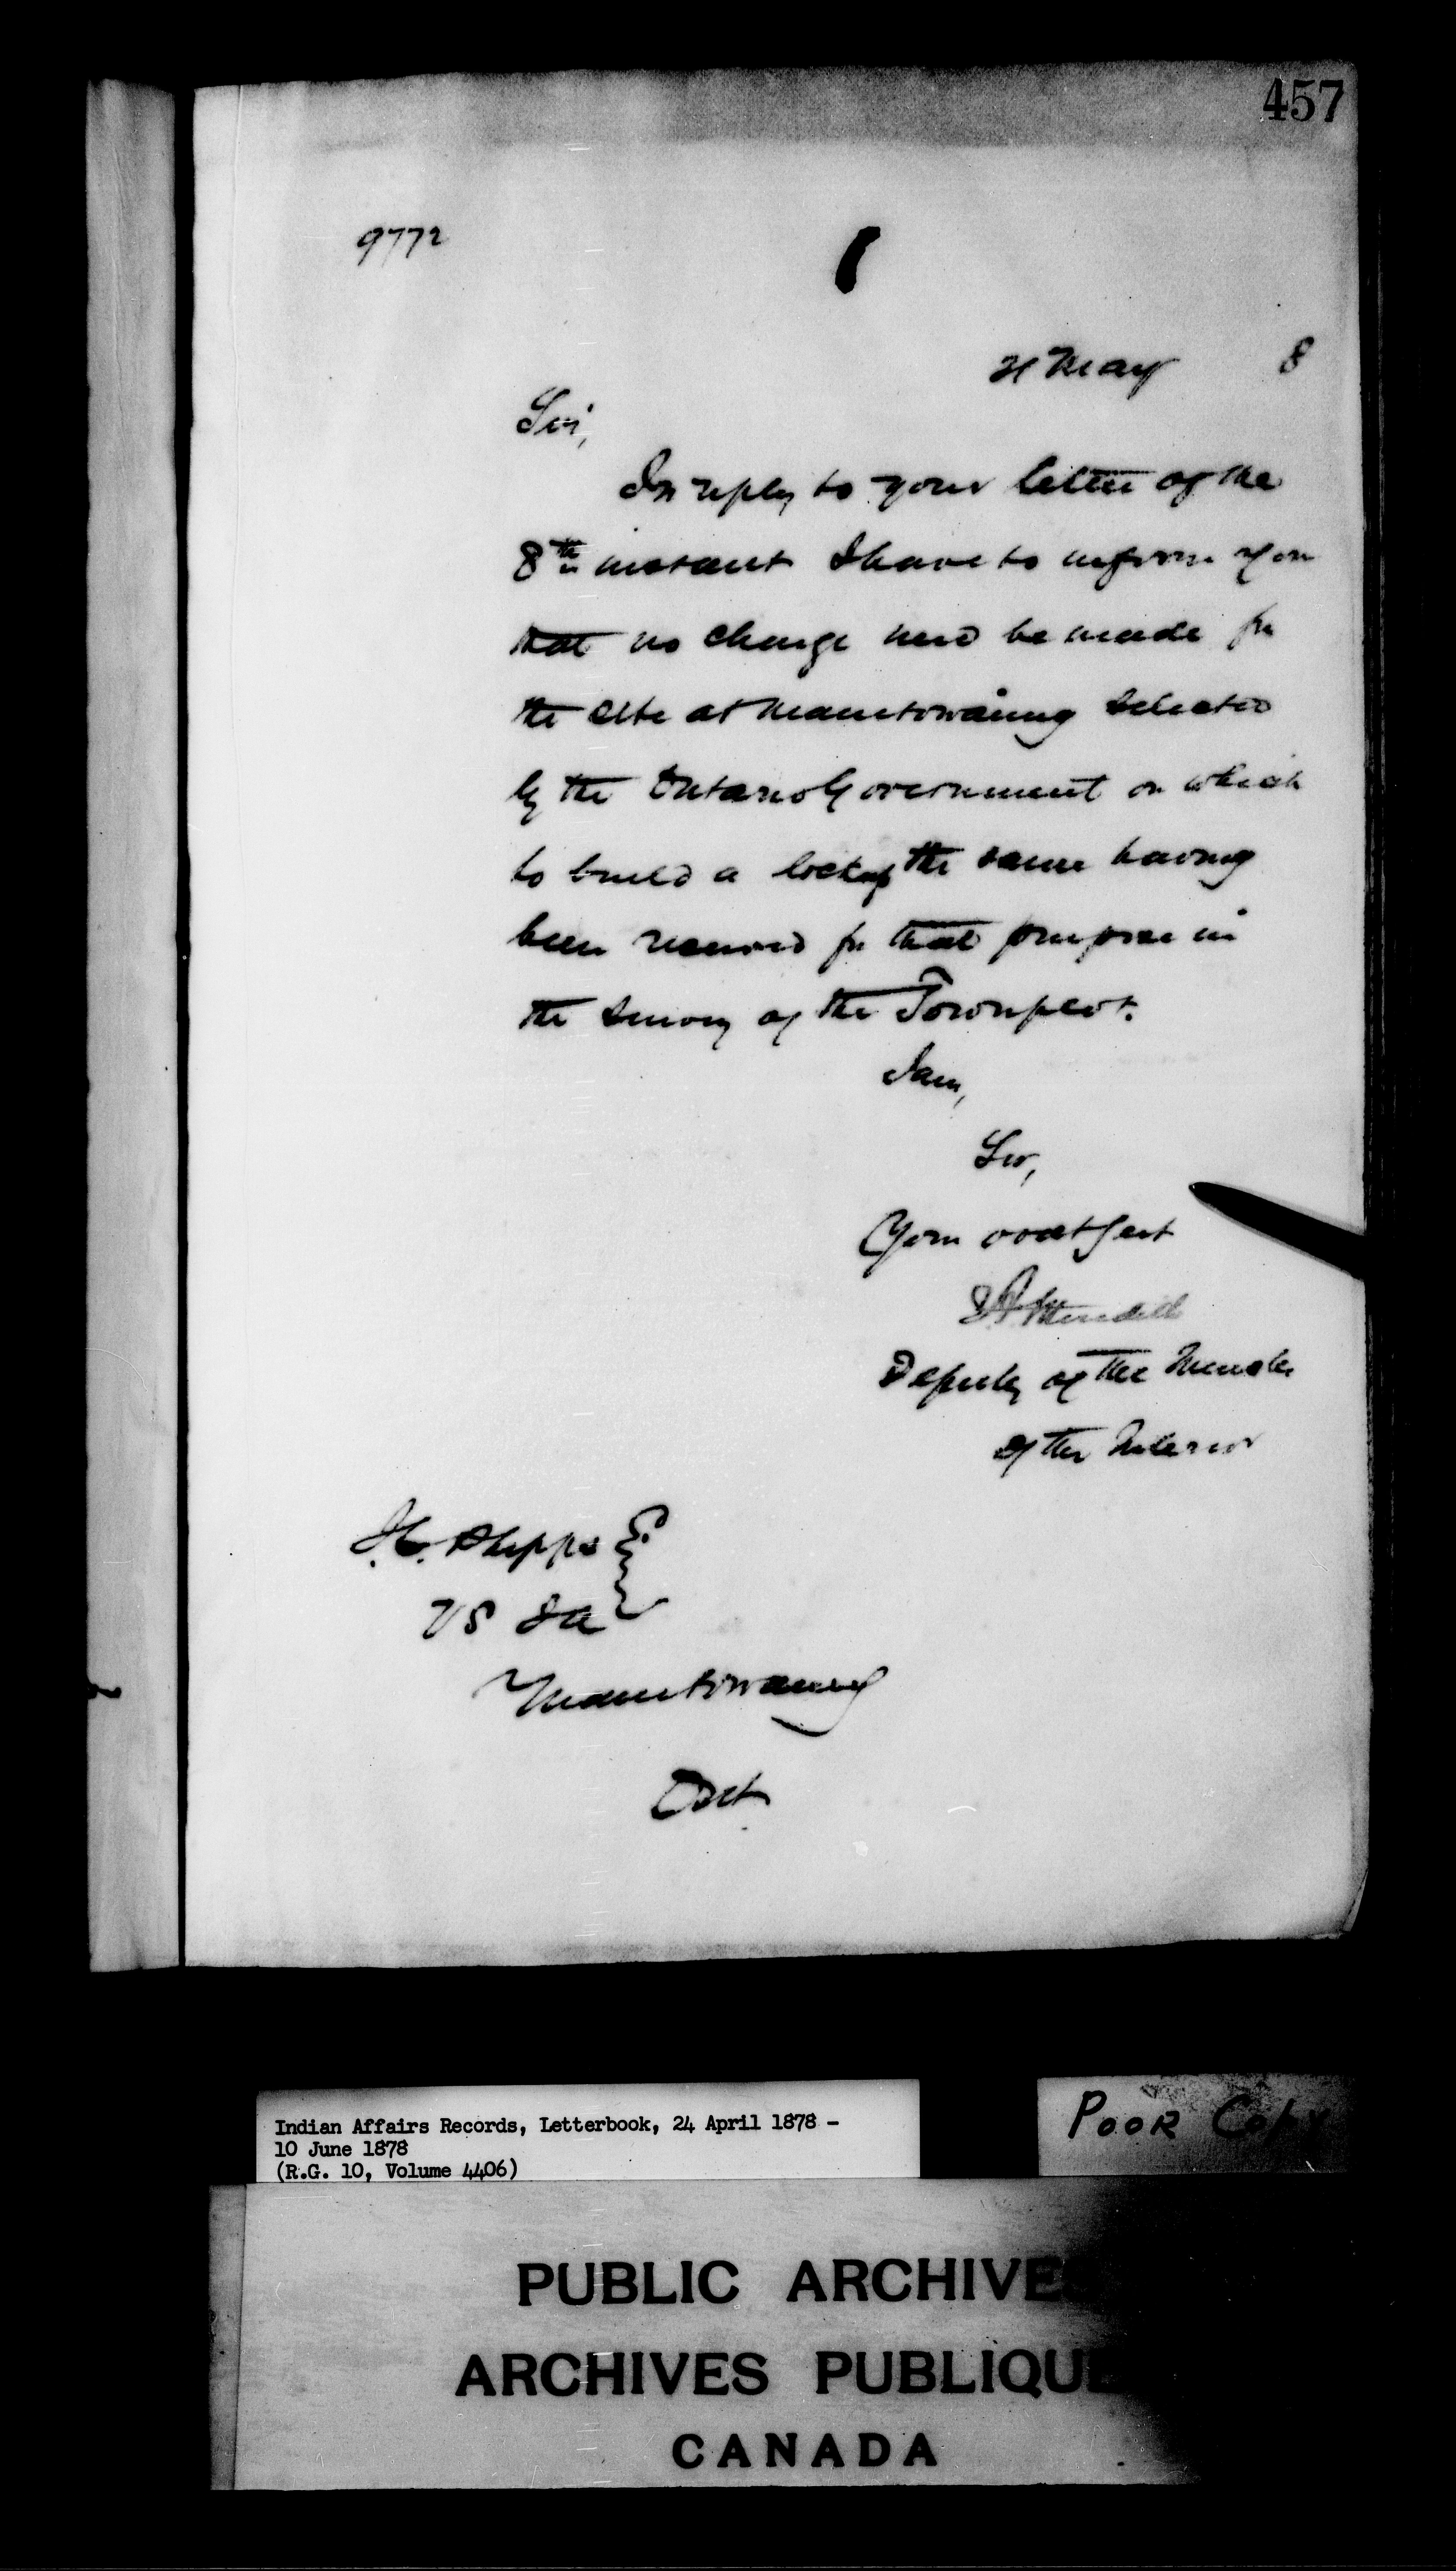 457
9772
21 May 8
Sir,
In reply to your letter of the
8th instant I have to inform you
that no charge need be made for
the site at Manitowaning selected
by the Ontario Government on which
to build a lockup the same having
been reserved for that purpose in
the survey of the Townplot.
I am,
Sir,
Your obdt Servt
Deputy of the Minister
of the Interior
J.C. Phipps
V S I A
Manitowaning
Ont.
Indian Affairs Records, Letterbook, 24 April 1878 -
10 June 1878
(R.G. 10, Volume 4406)
POOR Copy
PUBLIC ARCHIVES
ARCHIVES PUBLIQUE
CANADA